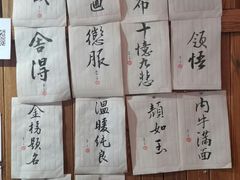 画
布
舍得
懲服
十憶九悲
领悟
金榜题名
溫暖纯良
顏如玉
内牛满面